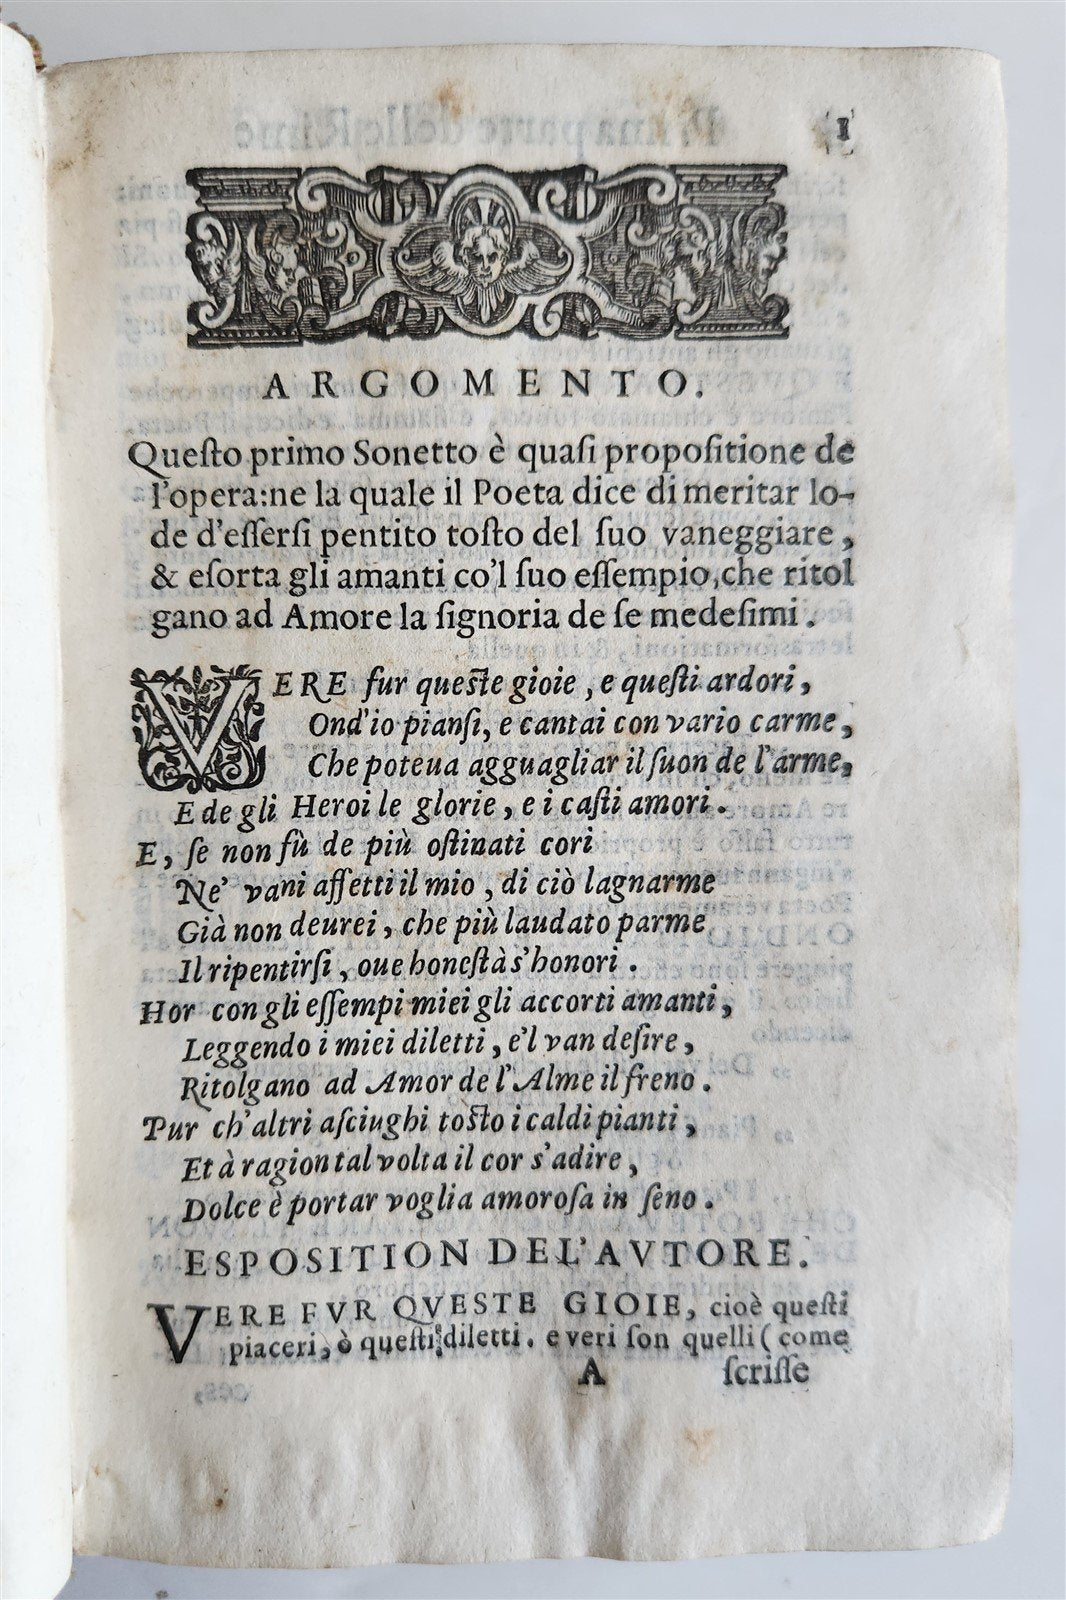 1
ARGOMENTO.
Queſto primo Sonetto è quaſi propoſitione de
l'opera:ne la quale il Poeta dice di meritar lo-
de d'eſſerſi pentito toſto del ſuo vaneggiare,
& eſorta gli amanti co'l ſuo eſſempio,che ritol
gano ad Amore la ſignoria de ſe medeſimi.
VERE fur queſte gioie, e queſti ardori,
Ond'io pianſi, e cantai con vario carme,
Che poteua agguagliar il ſuon de l'arme,
E de gli Heroi le glorie, e i caſti amori.
E, ſe non fù de più oſtinati cori
Ne' vani affetti il mio, di ciò lagnarme
Già non deurei, che più laudato parme
Il ripentirſi, oue honeſtà s'honori.
Hor con gli eſſempi miei gli accorti amanti,
Leggendo i miei diletti, e'l van deſire,
Ritolgano ad Amor de l'Alme il freno.
Pur ch'altri aſciughi toſto i caldi pianti,
Et à ragion tal volta il cor s'adire,
Dolce è portar voglia amoroſa in ſeno.
ESPOSITION DEL'AVTORE.
VERE FVR QVESTE GIOIE, cioè queſti
piaceri, ò queſti diletti. e veri ſon quelli (come
A ſcriſſe